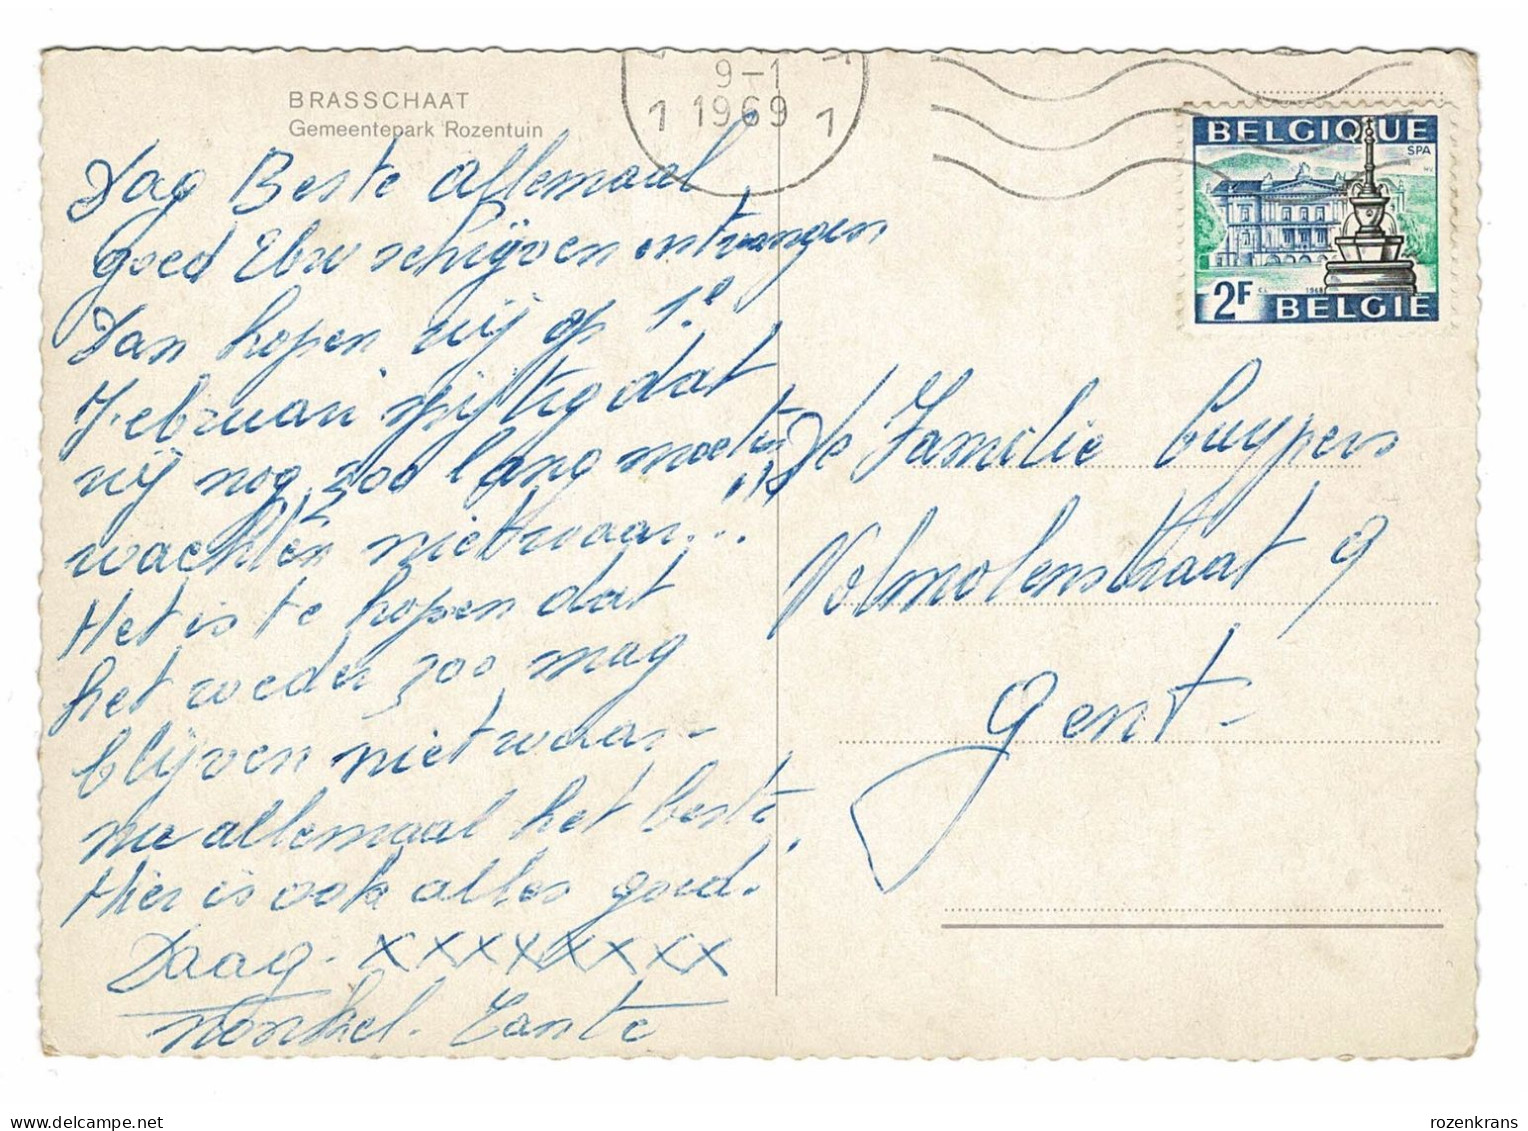 BRASSCHAAT
Gemeentepark Rozentuin
9-1
1 1969 1
BELGIQUE
SPA
1968
2F BELGIE
Dag Beste allemaal
goed Uw schijven ontvangen
Dan hopen wij op 1e
Februari spijtig dat
wij nog zoo lang moeten
wachten nietwaar...!!!
Het is te hopen dat
het weder zoo mag
blijven nietwaar-
nu allemaal het beste,
Hier is ook alles goed.
Daag - xxxxxxxx
Nonkel. Tante
De Familie Cuypers
Volmolenstraat 9
Gent-
rozenkrans